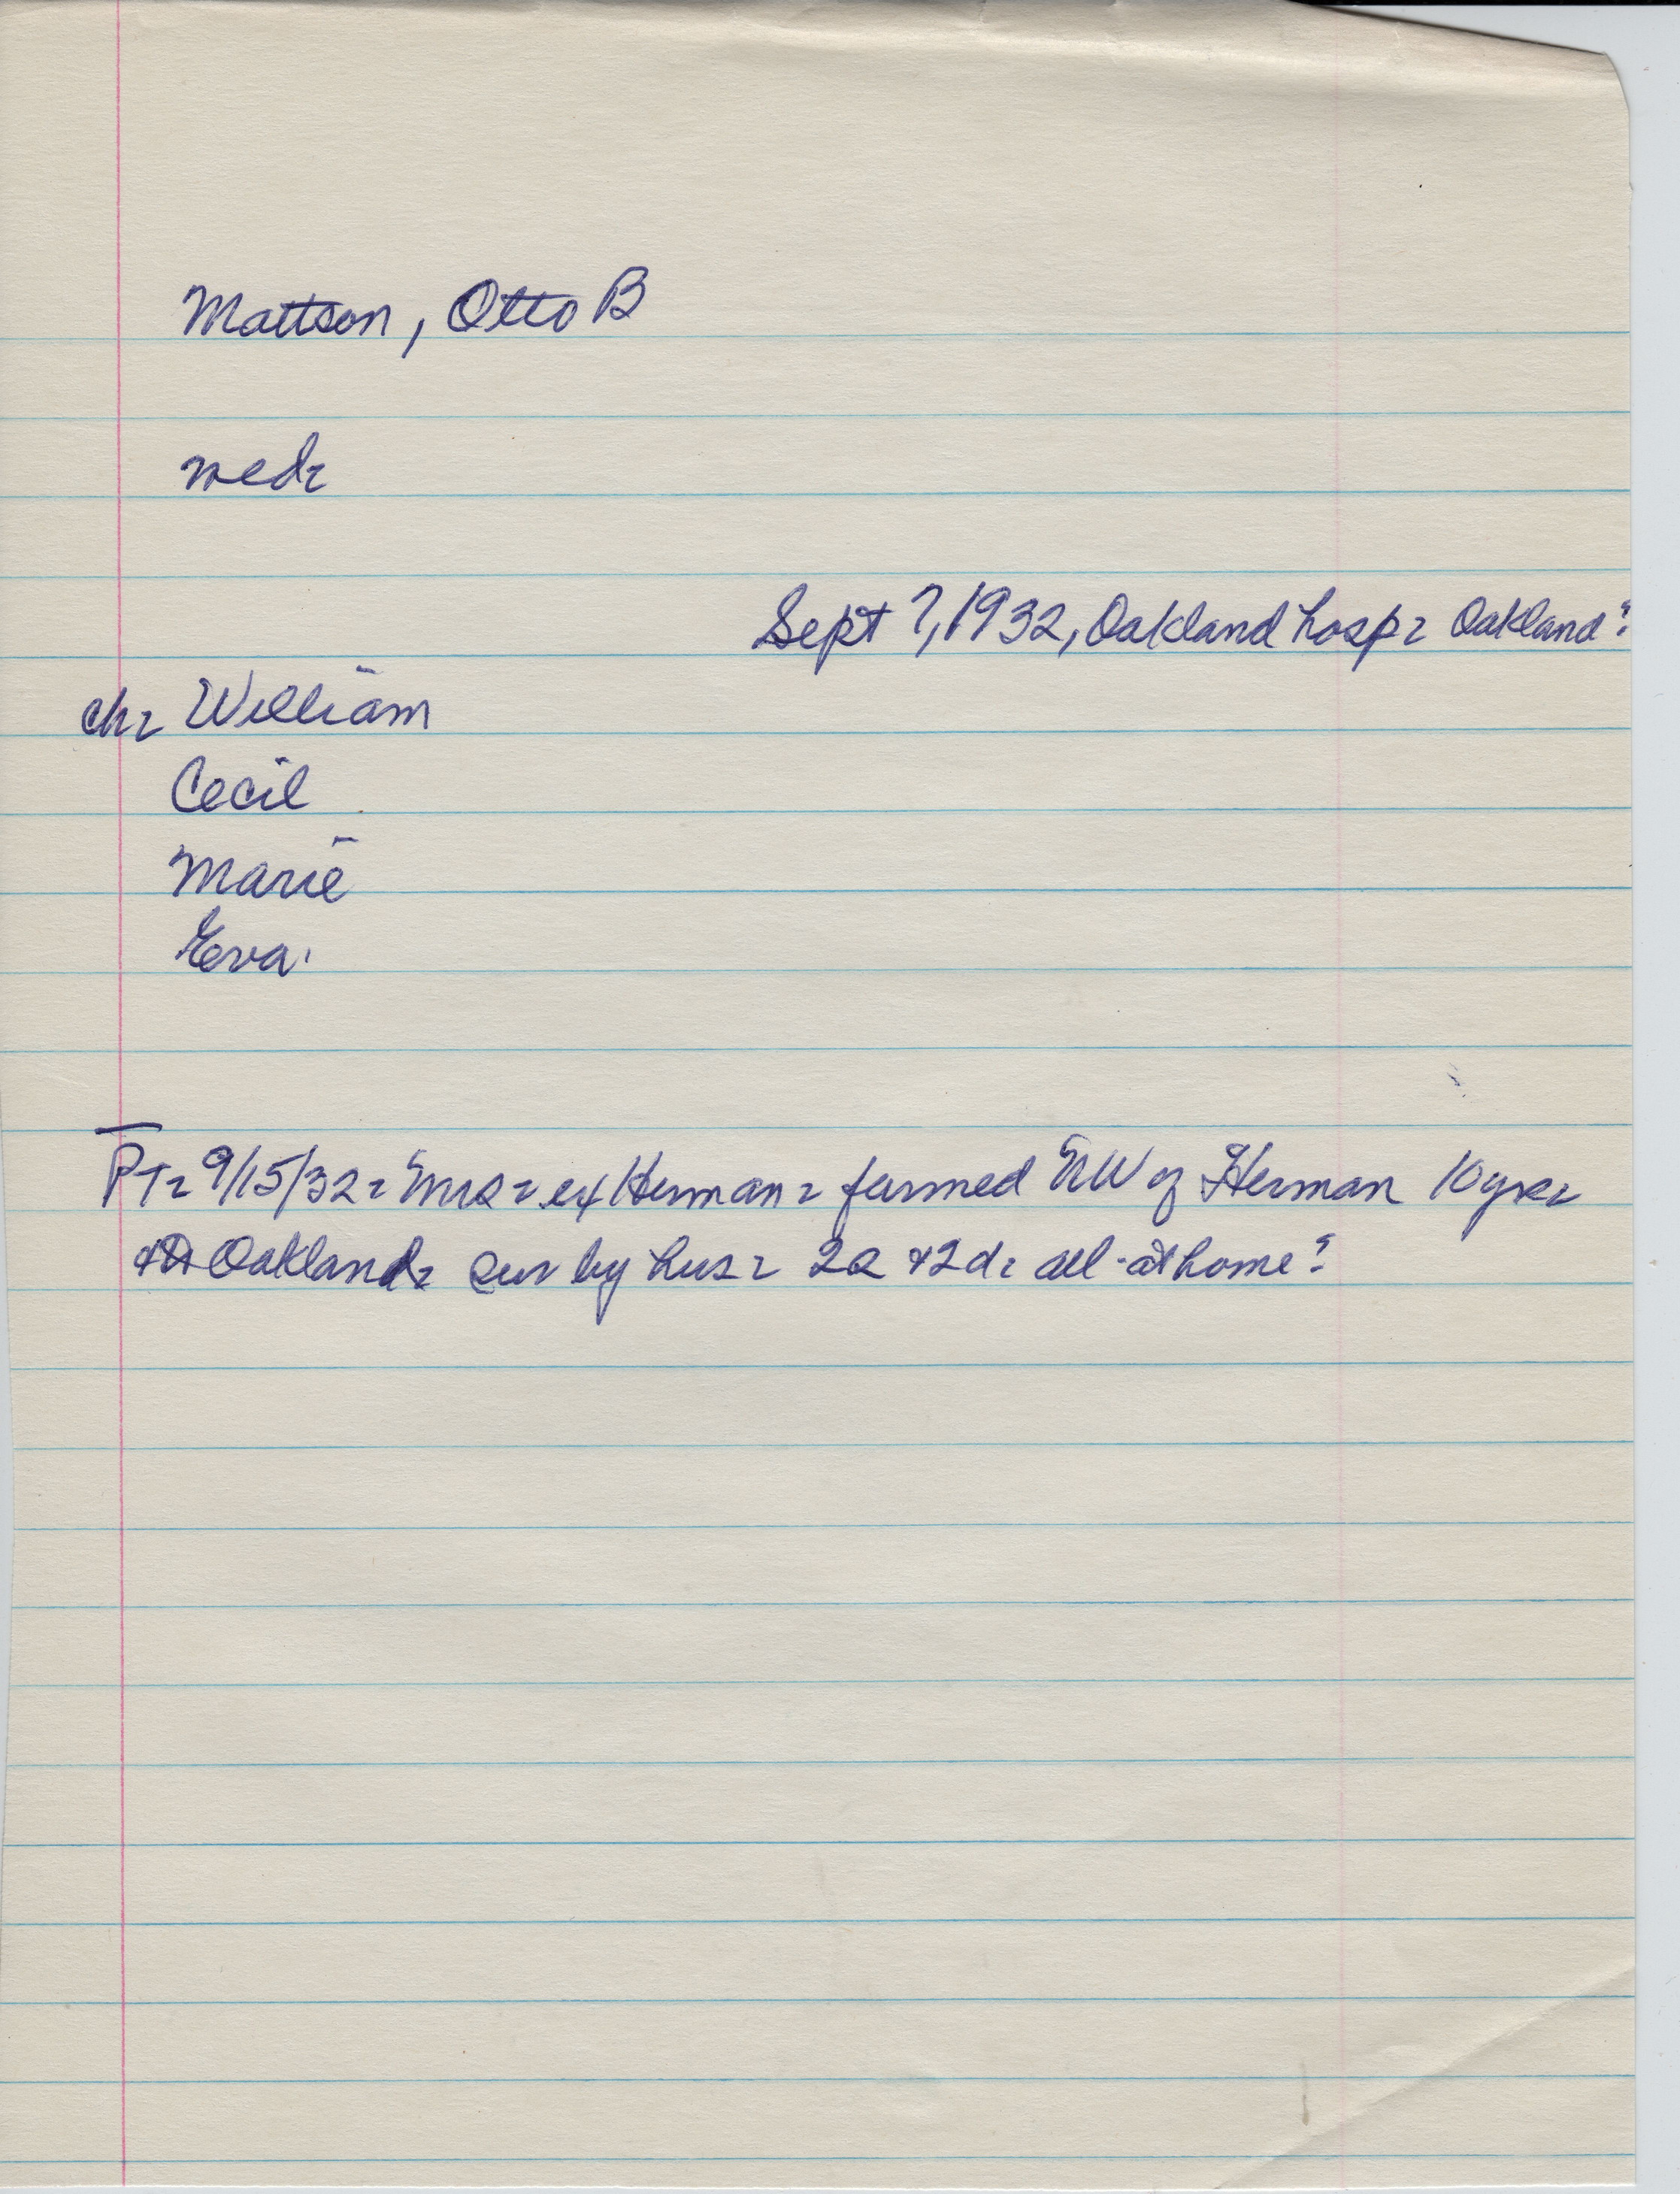 Mattson, Otto B
wed-
Sept 7, 1932, Oakland hosp- Oakland:
ch- William
Cecil
Marie
Eva.
PT- 9/15/32- Mrs- ex Herman- farmed NW of Herman 10 yrs-
Oakland- sur by hus- 2s &2d- all at home: